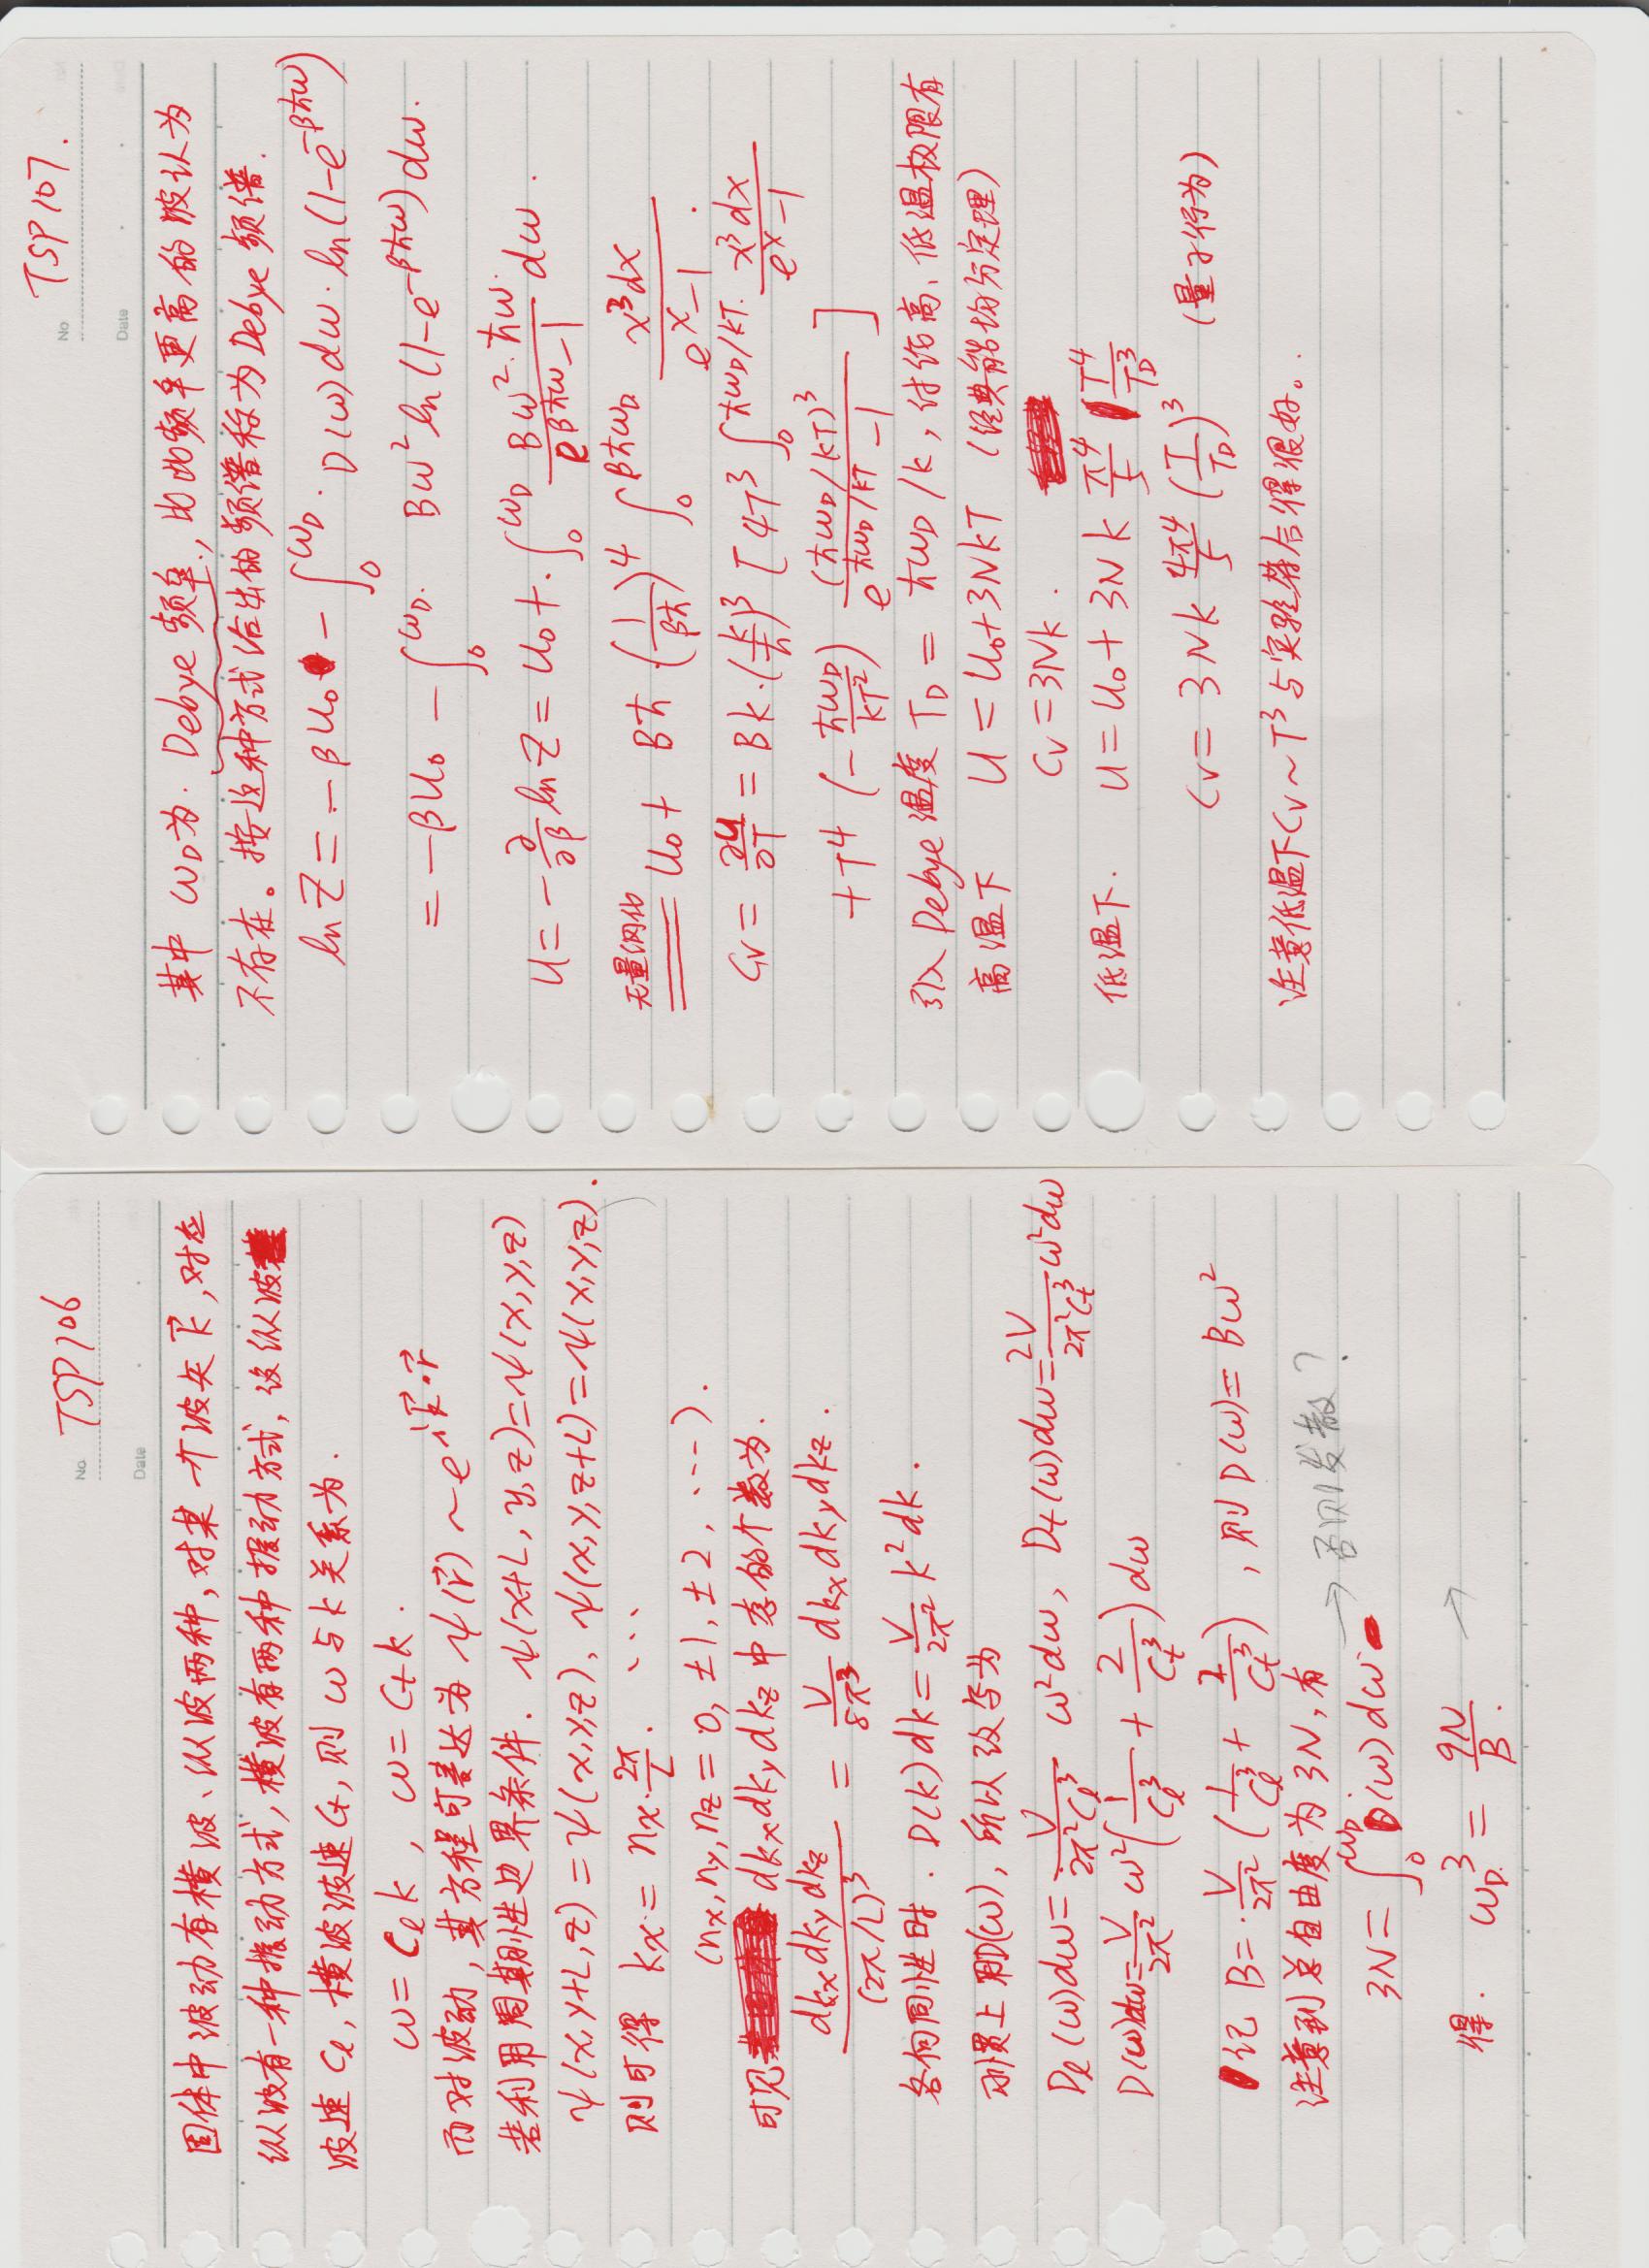 No TSP106
Date
固体中波动有横波、纵波两种,对某一个波矢 k⃗,对应
纵波有一种振动方式,横波有两种振动方式,设纵波
波速 Cl,横波波速 Ct,则 ω 与 k 关系为.
ω = Cl k , ω = Ct k .
而对波动,其方程可表达为 ψ(r⃗) ~ e^{i k⃗·r⃗}
若利用周期性边界条件. ψ(x+L, y, z)=ψ(x,y,z)
ψ(x,y+L,z) = ψ(x,y,z), ψ(x,y,z+L)=ψ(x,y,z).
则可得 kx = nx·2π/L. ...
(nx, ny, nz = 0, ±1, ±2, ···).
可见 dkx dky dkz 中态的个数为.
dkx dky dkz / (2π/L)³ = V/8π³ dkx dky dkz .
各向同性时. D(k) dk = V/2π² k² dk .
习惯上用D(ω),所以改写为
Dl(ω)dω = V/2π²Cl³ ω²dω, Dt(ω)dω = 2V/2π²Ct³ ω²dω
D(ω)dω = V/2π² ω² (1/Cl³ + 2/Ct³) dω
记 B = · V/2π² (1/Cl³ + 2/Ct³) ,则 D(ω) = Bω²
注意到总自由度为 3N,有
3N = ∫₀^{ωD} D(ω) dω → 否则发散?
得. ωD³ = 9N/B . →
No TSP107.
Date
其中 ωD为. Debye 频率.,比此频率更高的波认为
不存在。按这种方式给出的频谱称为Debye 频谱.
ln Z = -βU₀ - ∫₀^{ωD} · D(ω) dω · ln(1-e^{-βħω})
= -βU₀ - ∫₀^{ωD} Bω² ln(1-e^{-βħω}) dω.
U = -∂/∂β ln Z = U₀ + · ∫₀^{ωD} Bω²·ħω / (e^{βħω}-1) dω .
无量纲化 U₀ + Bħ (1/βħ)⁴ ∫₀^{βħωD} x³dx / (e^x-1) .
Cv = ∂U/∂T = Bk·(k/ħ)³ [ 4T³ ∫₀^{ħωD/kT} x³dx / (e^x-1)
+T⁴ (-ħωD/kT²) (ħωD/kT)³ / (e^{ħωD/kT} -1) ]
引入 Debye 温度 TD = ħωD /k,讨论高、低温极限有
高温下 U = U₀+3NkT (经典能均分定理)
Cv = 3Nk .
低温下. U = U₀ + 3Nk π⁴/5 T⁴/TD³
Cv = 3Nk 4π⁴/5 (T/TD)³ (量子行为)
注意低温下Cv ~ T³ 与实验符合得很好。.